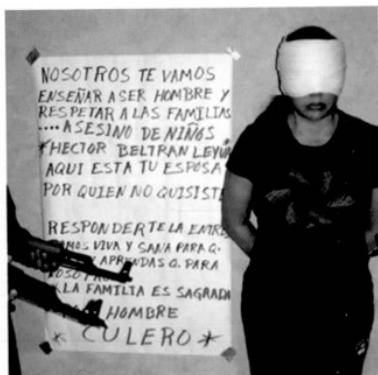 NOSOTROS TE VAMOS
ENSEÑAR A SER HOMBRE Y
RESPETAR A LAS FAMILIAS
.... ASESINO DE NIÑOS
HECTOR BELTRAN LEYVA
AQUI ESTA TU ESPOSA
POR QUIEN NO QUISISTE
RESPONDER TE LA ENTRE
VIVA Y SANA PARA Q.
APRENDAS Q. PARA
LA FAMILIA ES SAGRADA
HOMBRE
* CULERO *